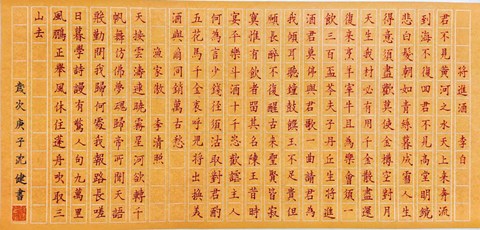 将進酒 李白
君不見黃河之水天上來奔流
到海不復回君不見高堂明鏡
悲白髮朝如青絲暮成雪人生
得意須盡歡莫使金樽空對月
天生我材必有用千金散盡還
復來烹羊宰牛且爲樂會須一
飲三百盃岑夫子丹丘生將進
酒君莫停與君歌一曲請君爲
我傾耳聽鐘鼓饌玉不足貴但
願長醉不願醒古來聖賢皆寂
寞惟有飲者留其名陳王昔時
宴平樂斗酒十千恣歡謔主人
何爲言少錢徑須沽取對君酌
五花馬千金裘呼兒將出換美
酒與爾同銷萬古愁
漁家傲 李清照
天接雲濤連曉霧星河欲轉千
帆舞彷彿夢魂歸帝所聞天語
殷勤問我歸何處我報路長嗟
日暮學詩謾有驚人句九萬里
風鵬正舉風休住蓬舟吹取三
山去
歲次庚子沈健書